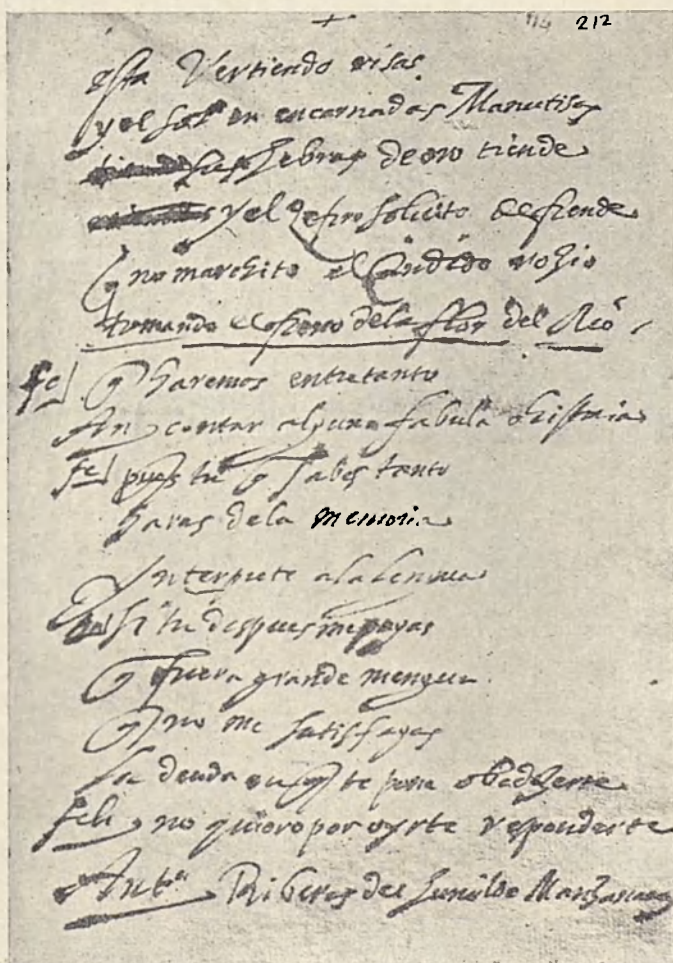 +
114 212
esta Vertiendo risas
y el sol en encarnadas Manutisas
sus hebras de oro tiende
y el Zefiro solicito defiende
q no marchite el candido rozio
de la flor del Rio
fe q haremos entretanto
An contar alguna fabula o historia
fe pues tu q sabes tanto
haras dela memoria
Interprete ala lengua
An si tu despues me pagas
q fuera grande mengua
q no me satisfagas
la deuda en q te pone obedezerte
feli no quiero por oyrte responderte
Antº Riberas del humilde Manzanares